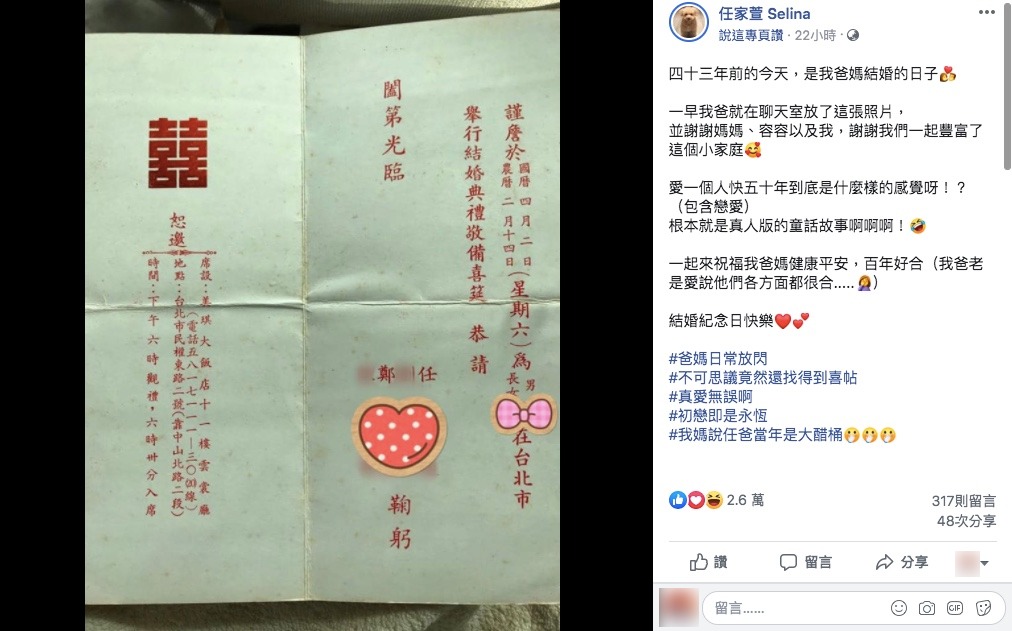 謹詹於國曆四月二日農曆二月十四日(星期六)為長女男在台北市
舉行結婚典禮敬備喜筵 恭請
闔第光臨
鄭任
鞠躬
囍
恕邀
席設：美琪大飯店十一樓雲裳廳
(電話五八一七一一一–三○(四)線)
地點：台北市民權東路二號(靠中山北路二段)
時間：下午六時觀禮，六時卅分入席
任家萱 Selina
說這專頁讚 · 22小時 ·
四十三年前的今天，是我爸媽結婚的日子💏
一早我爸就在聊天室放了這張照片，
並謝謝媽媽、容容以及我，謝謝我們一起豐富了
這個小家庭🥰
愛一個人快五十年到底是什麼樣的感覺呀！？
（包含戀愛）
根本就是真人版的童話故事啊啊啊！🤣
一起來祝福我爸媽健康平安，百年好合（我爸老
是愛說他們各方面都很合.....🤦‍♀️）
結婚紀念日快樂❤️💕
#爸媽日常放閃
#不可思議竟然還找得到喜帖
#真愛無誤啊
#初戀即是永恆
#我媽說任爸當年是大醋桶🤭🤭🤭
2.6 萬
317則留言
48次分享
讚
留言
分享
留言......
GIF